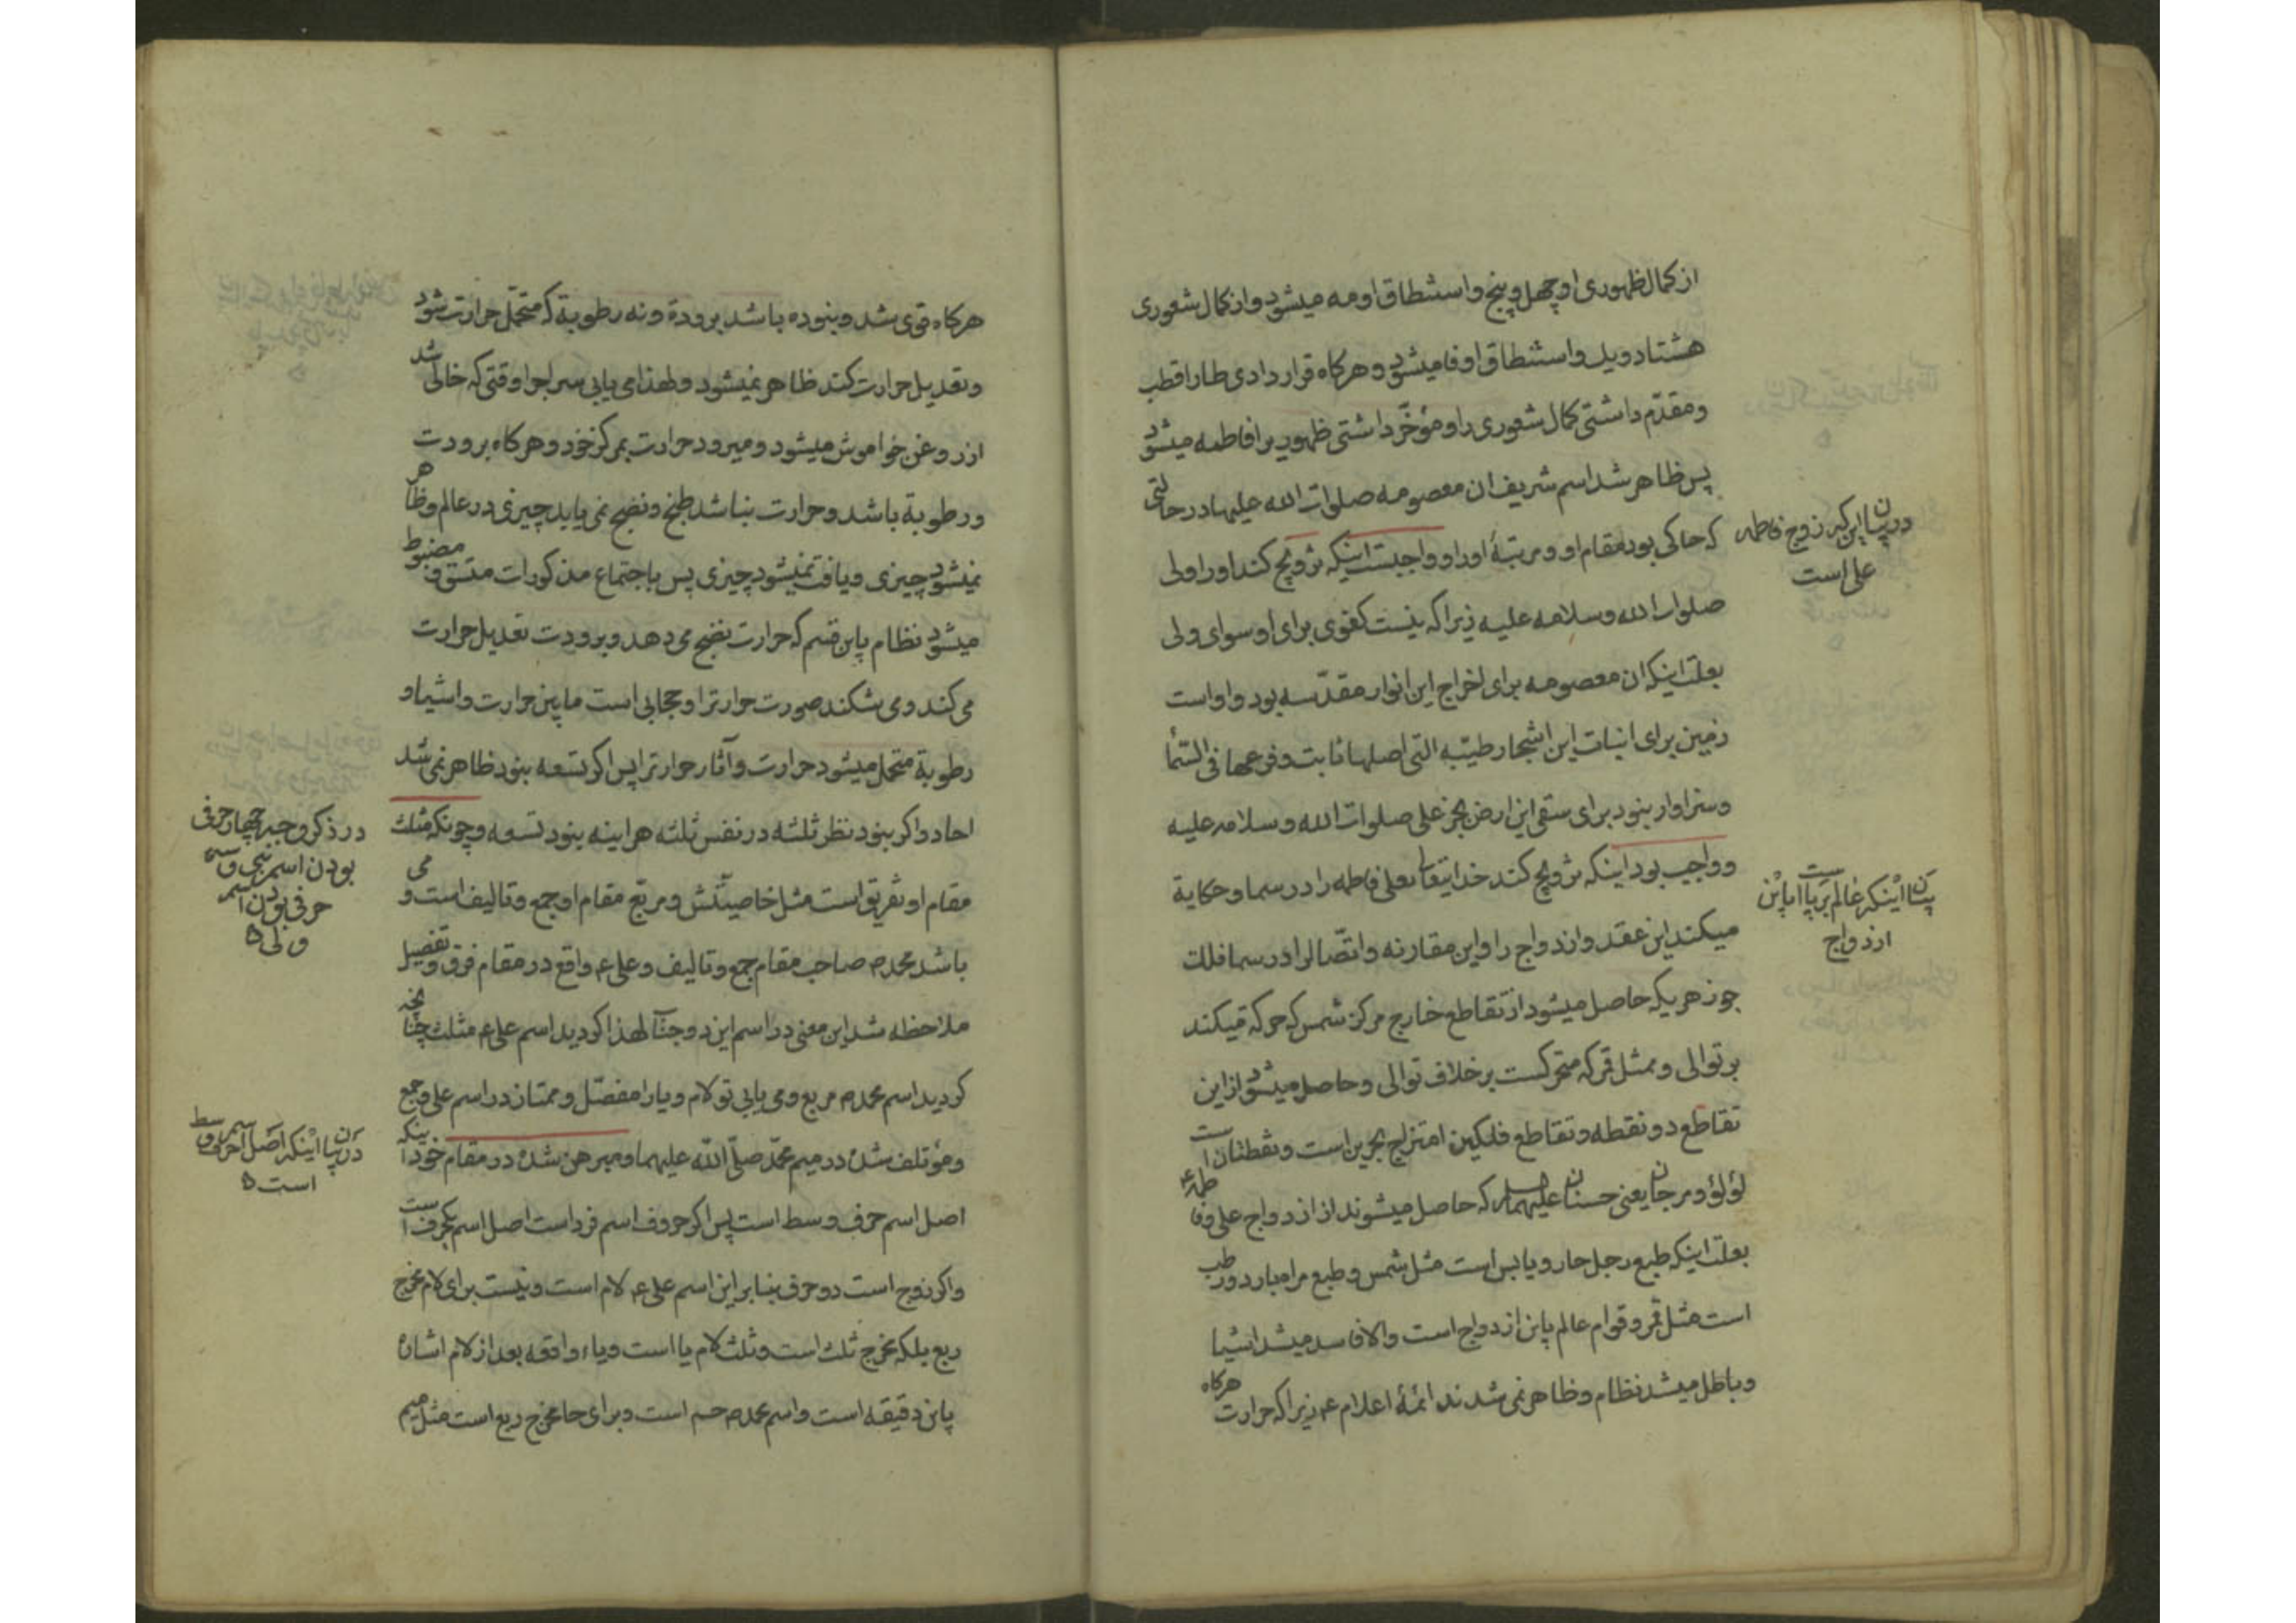 از کمال ظهوری او چهل و پنج و استنطاق او مه میشود و از کمال شعوری
هشتاد و یک و استنطاق او فا میشود و هرکاه قرار دادی طا را قطب
و مقدّم داشتی کمال شعوری را و مؤخّر داشتی ظهوریرا فاطمه میشود
پس ظاهر شد اسم شریف ان معصومه صلوات الله علیها در حالتی
که حاکی بود مقام او و مرتبهٔ او را و واجبست اینکه تزویج کند او را ولی
صلوات الله و سلامه علیه زیرا که نیست کفوی برای او سوای ولی
بعلت اینکه ان معصومه برای اخراج این انوار مقدّسه بود و او است
زمین برای انبات این اشجار طیّبه التی اصلها ثابت و فرعها فی السّمأ
و سزاوار بنود برای سقی این ارض بجز علی صلوات الله و سلامه علیه
و واجب بود اینکه تزویج کند خدایتعالی بعلی فاطمه را در سما و حکایة
میکند این عقد و ازدواج را و این مقارنه و اتّصالرا در سما فلک
جوزهر یکه حاصل میشود از تقاطع خارج مرکز شمس که حرکة میکند
بر توالی و ممثل قمر که متحرکست بر خلاف توالی و حاصل میشود از این
تقاطع دو نقطه و تقاطع فلکین امتزاج بحرین است و نقطتان است
لؤلؤ و مرجان یعنی حسنان علیهما السلم که حاصل میشوند از ازدواج علی و فاطمه ع
بعلت اینکه طبع رجل حار و یابس است مثل شمس و طبع مراه بارد و رطب
است مثل قمر و قوام عالم باین ازدواج است و الا فاسد میشد اشیا
و باطل میشد نظام و ظاهر نمی شدند ائمهٔ اعلام ع زیرا که حرارت هرکاه
در بیان این که زوج فاطمه
علی است
بیان اینکه عالم برپا باین است
ازدواج
هرکاه قوی شد و بنوده باشد برودة و نه رطوبة که متحمّل حرارت شود
و تعدیل حرارت کند ظاهر نمیشود و لهذا می یابی سراجرا وقتی که خالی شد
از روغن خواموش میشود و میرود حرارت بمرکز خود و هرکاه برودت
و رطوبة باشد و حرارت نباشد طبخ و نضج نمی یابد چیزی در عالم و ظاهر
نمیشود چیزی و یافت نمیشود چیزی پس باجتماع مذکورات متسق و مضبوط
میشود نظام باین قسم که حرارت نضج می دهد و برودت تعدیل حرارت
می کند و می شکند صورت حرارترا و حجابی است ما بین حرارت و اشیا و
رطوبة متحمل میشود حرارت و آثار حرارترا پس اکر تسعه بنود ظاهر نمی شد
احاد و اکر بنود نظر ثلثه در نفس ثلثه هراینه بنود تسعه و چونکه مثلث
مقام او تفریق است مثل خاصیتش و مربّع مقام او جمع و تالیف است و می
باشد محمد ص صاحب مقام جمع و تالیف و علی ع واقع در مقام فرق و تفصیل
ملاحظه شد این معنی در اسم این دو جناب لهذا کردید اسم علی ع مثلث چنانچه
کردید اسم محمد ص مربع و می یابی تو لام و یا را مفصّل و ممتاز در اسم علی و جمع
و مؤتلف شده در میم محمّد صلّی الله علیهما و مبرهن شده در مقام خود اینکه
اصل اسم حرف وسط است پس اکر حروف اسم فرد است اصل اسم یکحرف است
و اکر زوج است دو حرف بنابر این اسم علی ع لام است و نیست برای لام مخرج
ربع بلکه مخرج ثلث است و ثلث لام یا است و یاء واقعه بعد از لام اشاره
باین دقیقه است و اسم محمد ص حم است و برای حا مخرج ربع است مثل میم
در ذکر وجه چهار حرفی
بودن اسم نبی و سه
حرفی بودن اسم
ولی
در بیان اینکه اصل اسم حرف وسط
است